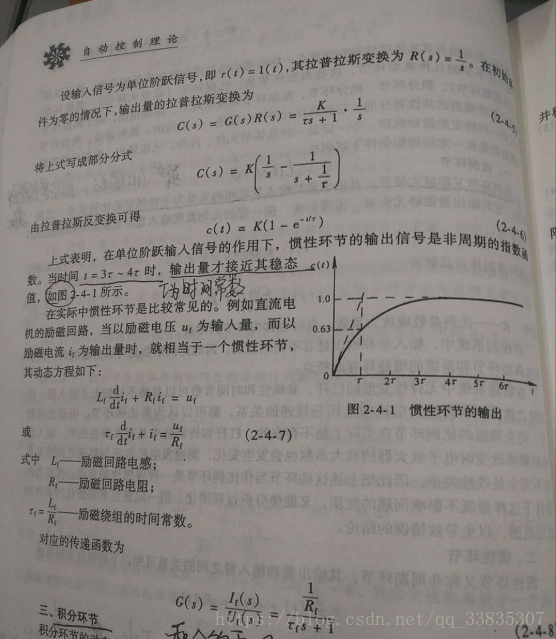 自动控制理论
设输入信号为单位阶跃信号,即 r(t)=1(t),其拉普拉斯变换为 R(s)=1/s。在初始
件为零的情况下,输出量的拉普拉斯变换为
C(s) = G(s)R(s) = K/(τs + 1) · 1/s (2-4-5)
将上式写成部分分式
C(s) = K(1/s − 1/(s + 1/τ))
由拉普拉斯反变换可得
c(t) = K(1 − e^(−t/τ)) (2-4-6)
上式表明,在单位阶跃输入信号的作用下,惯性环节的输出信号是非周期的指数函
数。当时间 t = 3τ ~ 4τ 时,输出量才接近其稳态
值,如图 2-4-1 所示。 τ为时间常数
在实际中惯性环节是比较常见的。例如直流电
机的励磁回路,当以励磁电压 uf 为输入量,而以
励磁电流 if 为输出量时,就相当于一个惯性环节,
其动态方程如下:
Lf d/dt if + Rf if = uf
或 τf d/dt if + if = uf/Rf (2-4-7)
式中 Lf——励磁回路电感;
Rf——励磁回路电阻;
τf = Lf/Rf——励磁绕组的时间常数。
对应的传递函数为
G(s) = If(s)/Uf(s) = (1/Rf)/(τf s + 1)
(2-4-8
三、积分环节
c(t)
1.0
0.63
0 τ 2τ 3τ 4τ 5τ 6τ t
图 2-4-1 惯性环节的输出
https://blog.csdn.net/qq_33835307